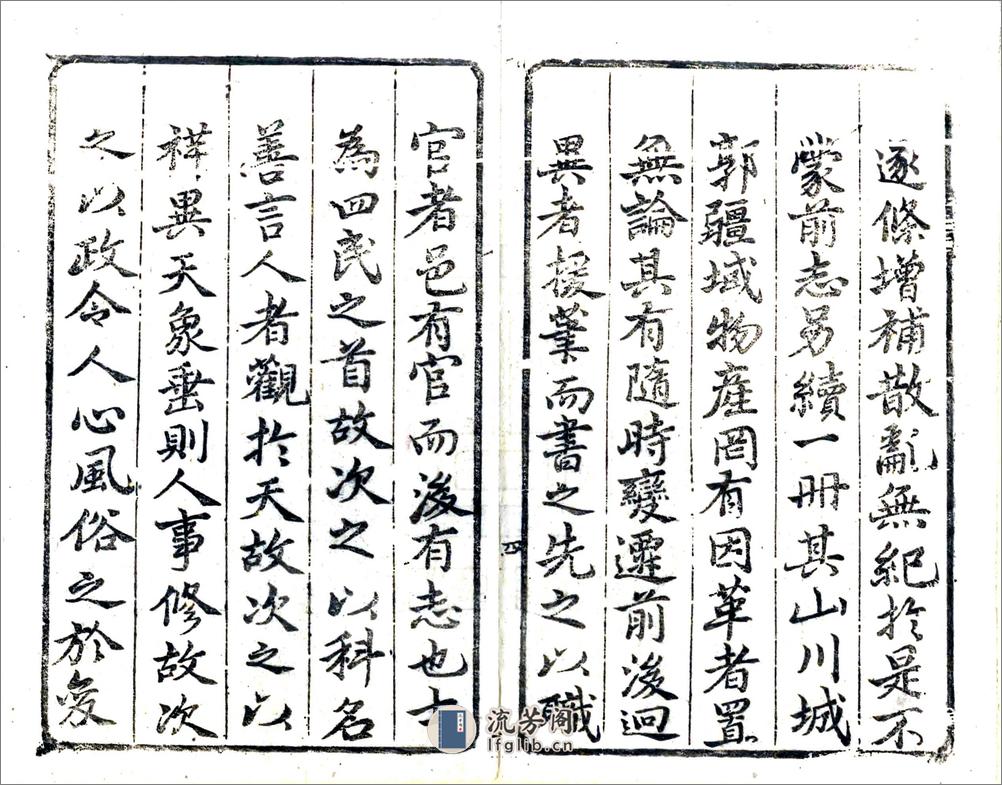 逐條增補散亂無紀於是不
蒙前志另續一冊其山川城
郭疆域物產罔有因革者置
無論其有隨時變遷前後迥
異者援筆而書之先之以職
四
官者邑有官而後有志也士
為四民之首故次之以科名
善言人者觀於天故次之以
祥異天象垂則人事修故次
之以政令人心風俗之於
流芳閣
lfglib.cn